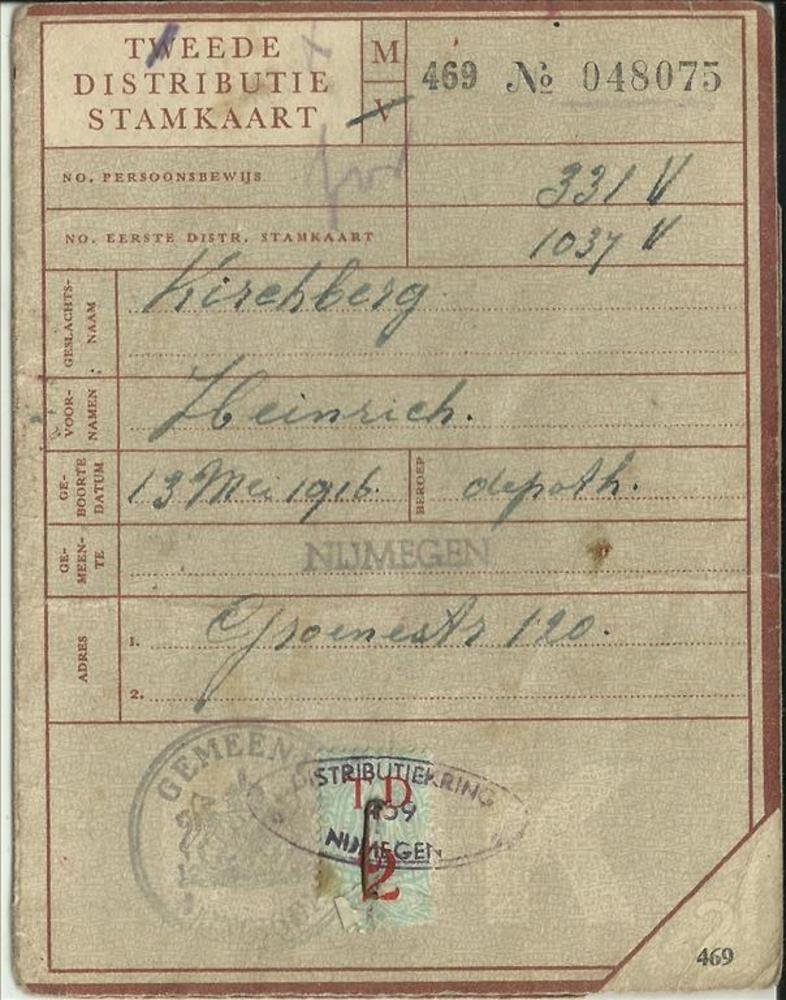 TWEEDE
DISTRIBUTIE
STAMKAART
M
V
469 № 048075
NO. PERSOONSBEWIJS
331 V
NO. EERSTE DISTR. STAMKAART
1037 V
GESLACHTS-
NAAM
Kirchberg
VOOR-
NAMEN
Heinrich.
GE-
BOORTE
DATUM
13 Mei 1916.
BEROEP
depoth.
GE-
MEEN-
TE
NIJMEGEN
ADRES
1. Groenestr 120.
2.
GEMEEN
DISTRIBUTIEKRING
TD
NIJMEGEN
2
469